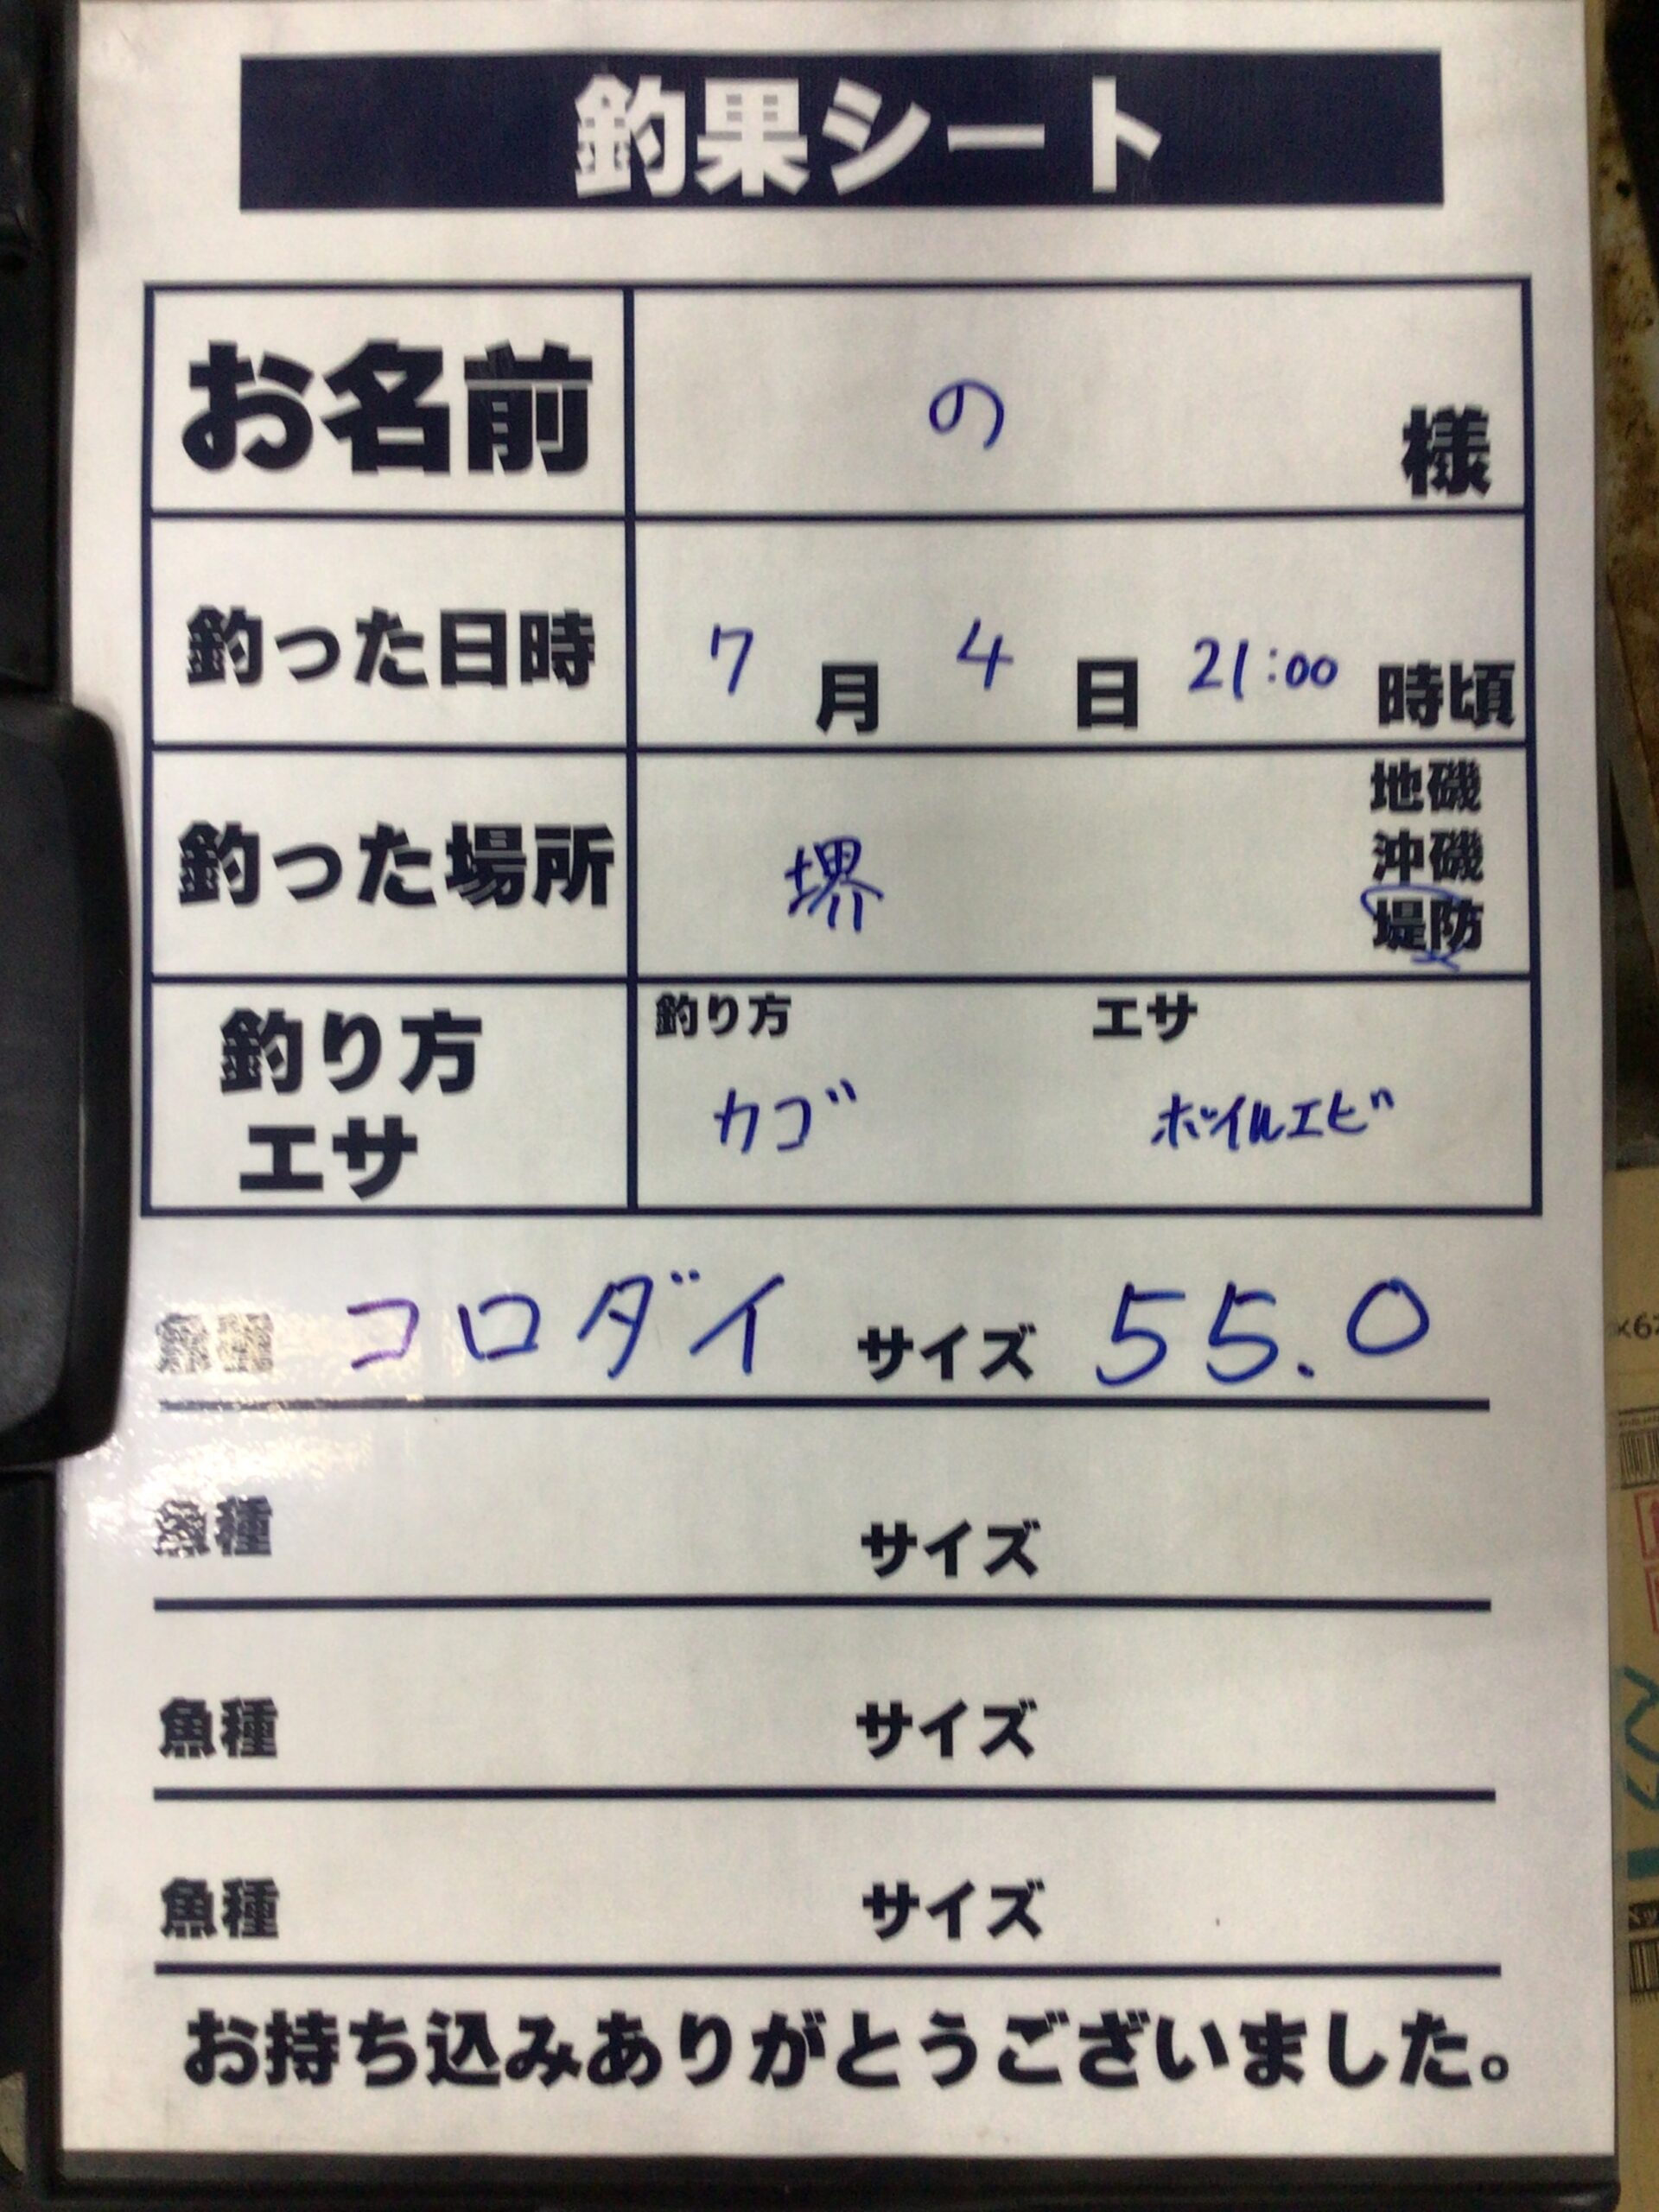 釣果シート
お名前 の 様
釣った日時 7月 4日 21:00 時頃
釣った場所 堺 地磯
沖磯
堤防
釣り方 エサ
釣り方 カゴ エサ ボイルエビ
魚種 コロダイ サイズ 55.0
魚種 サイズ
魚種 サイズ
魚種 サイズ
お持ち込みありがとうございました。